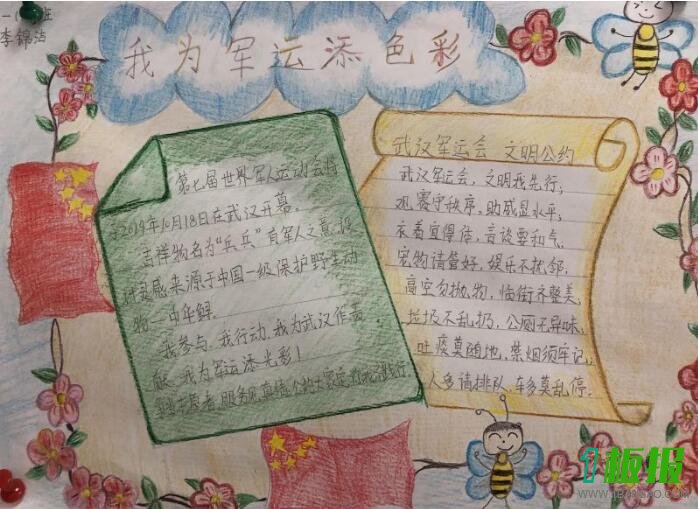 班
李锦洁
我为军运添色彩
第七届世界军人运动会将
2019年10月18日在武汉开幕。
吉祥物名为“兵兵”有军人之意,设
计灵感来源于中国一级保护野生动
物—中华鲟。
我参与,我行动,我为武汉作贡
献,我为军运添光彩!
武汉军运会 文明公约
武汉军运会,文明我先行;
观赛守秩序,助威显水平;
衣着宜得体,言谈要和气。
宠物请管好,娱乐不扰邻。
高空勿抛物,临街齐整美,
垃圾不乱扔,公厕无异味。
吐痰莫随地,禁烟须牢记。
人多请排队,车多莫乱停.
1板报